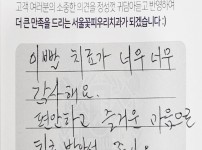 고객 여러분의 소중한 의견을 정성껏 귀담아듣고 반영하여
더 큰 만족을 드리는 서울꽃피우리치과가 되겠습니다 :)
이빨 치료가 너무너무
감사해요.
편안하고 즐거운 마음으로
치료 받아서